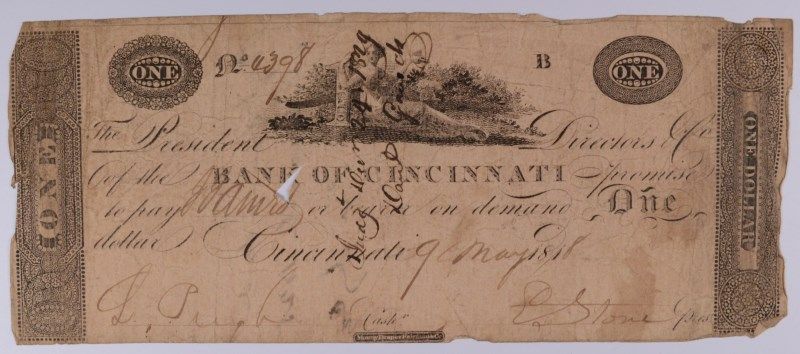 ONE
ONE
No. 4398
B
ONE
The President Directors & Co
of the BANK OF CINCINNATI promise
to pay or bearer on demand One
dollar Cincinnati 9 May 1818
L. Pugh Cashr. E. Stone Pres.
Murray Draper Fairman & Co
ONE DOLLAR
1819